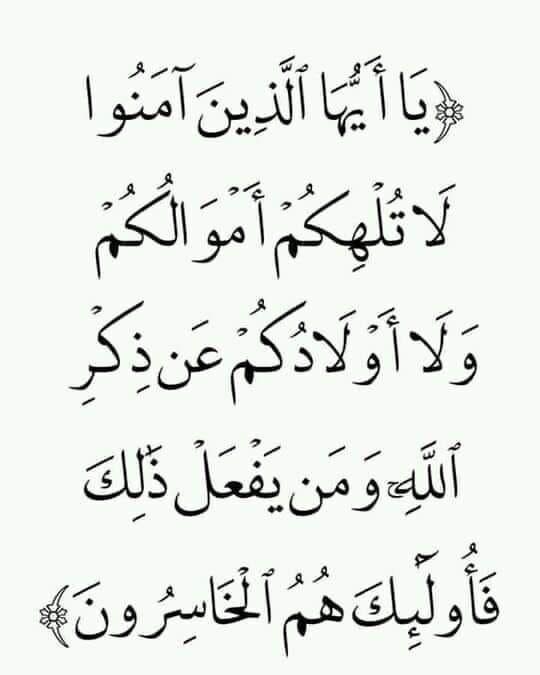 ﴿يَا أَيُّهَا ٱلَّذِينَ آمَنُوا
لَا تُلْهِكُمْ أَمْوَالُكُمْ
وَلَا أَوْلَادُكُمْ عَن ذِكْرِ
ٱللَّهِۚ وَمَن يَفْعَلْ ذَٰلِكَ
فَأُولَٰٓئِكَ هُمُ ٱلْخَاسِرُونَ﴾